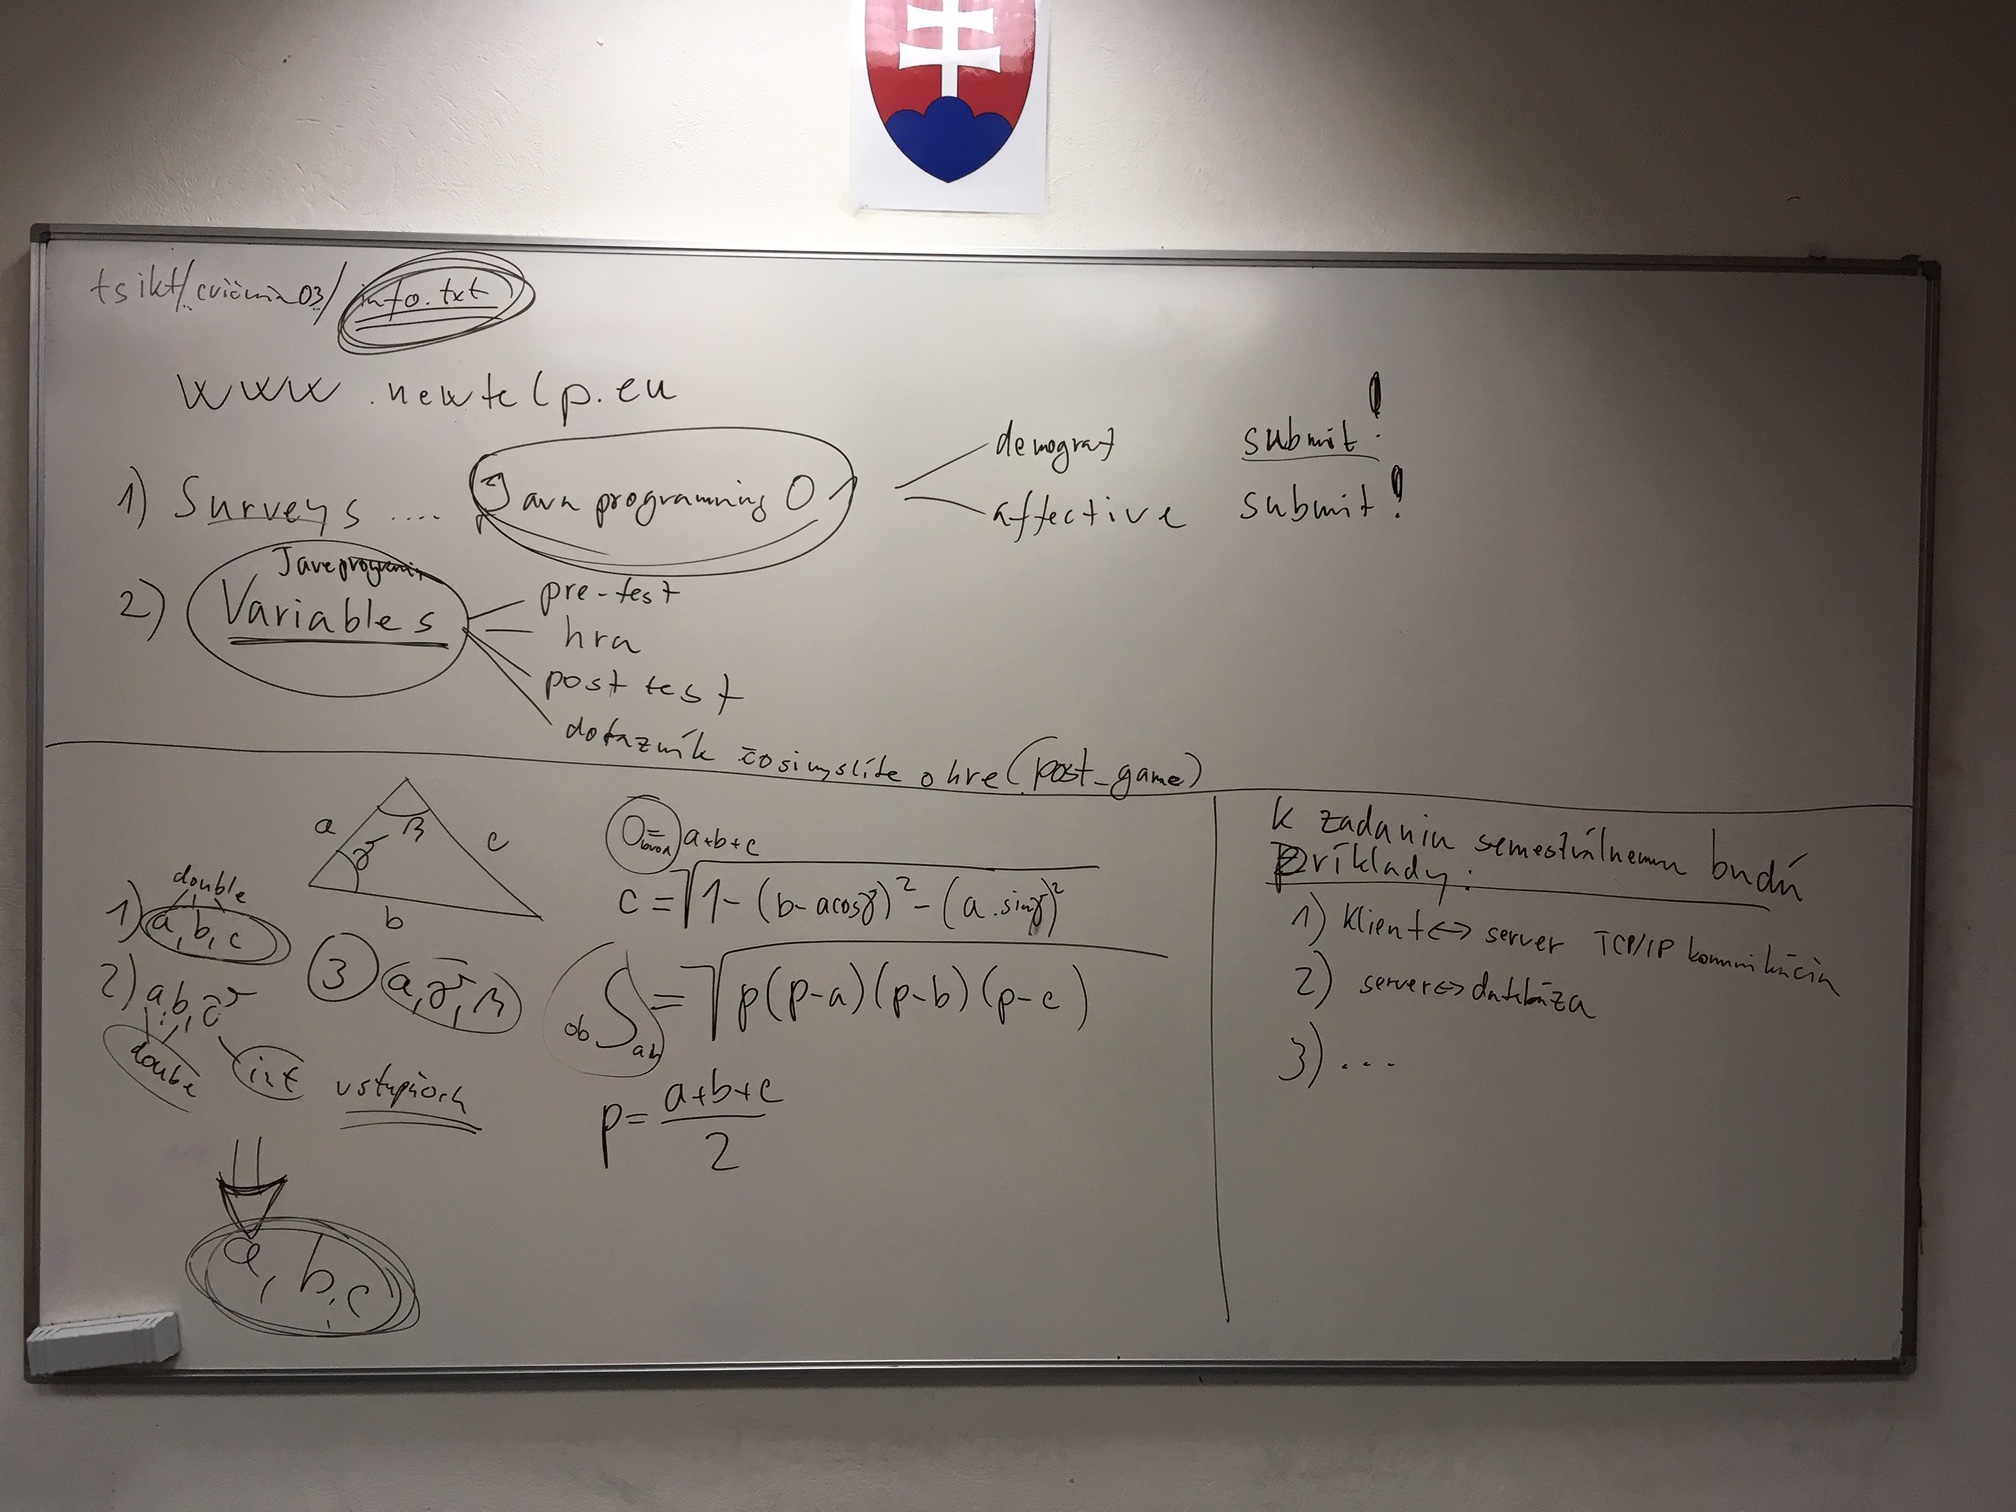 tsikt/cvičenia03/info.txt
www.newtelp.eu
1) Surveys .... Java programming 0
demograf submit!
affective submit!
2) Variables
pre-test
hra
post test
dotazník čo si myslíte o hre (post_game)
a
β
γ
c
b
double
1) a, b, c
2) a, b, γ
double
int
vstupoch
3 (a, γ, β)
a, b, c
O= a+b+c
c = √1-(b-acosγ)²-(a.sinγ)²
S = √p(p-a)(p-b)(p-c)
p= a+b+c
2
K zadaniu semestrálnemu budú
Príklady:
1) Klient <-> server TCP/IP komunikácia
2) server <-> databáza
3) ...